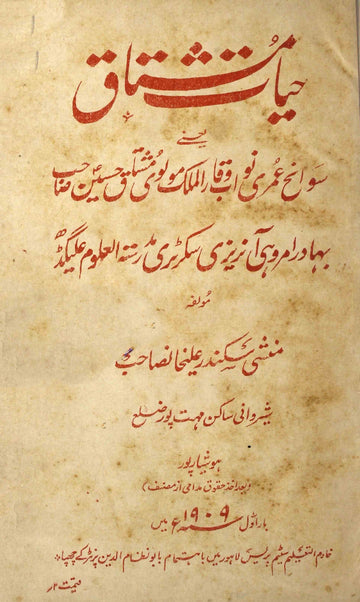 حیات مشتاق
یعنے
سوانح عمری نواب وقار الملک مولوی مشتاق حسین صاحب
بہادر امروہی آنریزی سکرٹری مدرستہ العلوم علیگڈھ
مولفہ
منشی سکندر علیخانصاحب
شیروانی ساکن مہت پور ضلع
ہوشیارپور
(بعد اخذ حقوق مدامی از مصنف)
بار اول سنہ ۱۹۰۹ء میں
خادم التعلیم سٹیم پریس لاہور میں باہتمام بابو نظام الدین پرنٹر کے چھپا
قیمت ۲ر